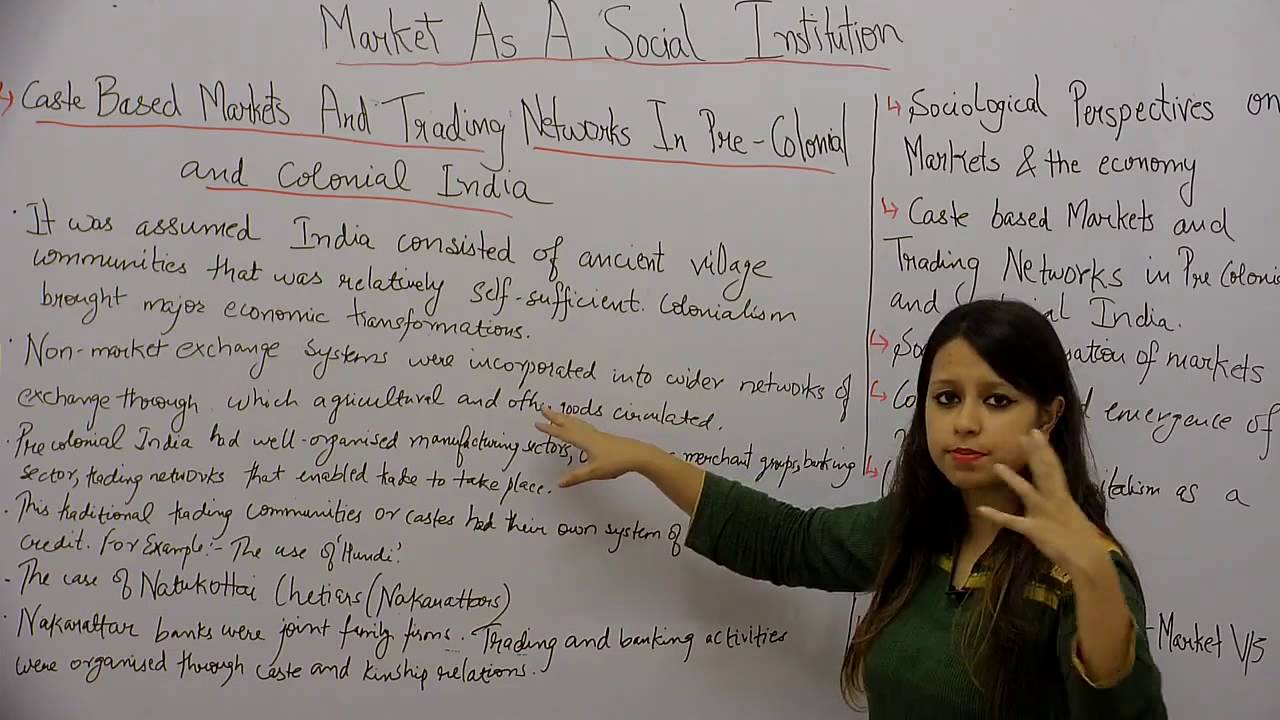 Market As A Social Institution
Caste Based Markets And Trading Networks In Pre-Colonial
and Colonial India
It was assumed India consisted of ancient village
communities that was relatively self-sufficient. Colonialism
brought major economic transformations.
Non-market exchange systems were incorporated into wider networks of
exchange through which agricultural and othe goods circulated.
Pre colonial India had well-organised manufacturing sectors, merchant groups, banking
sector, trading networks that enabled trade to take place.
This traditional trading communities or castes had their own system of
credit. For Example:- The use of 'Hundi'.
The case of Natukottai Chetiars (Nakarattars)
Nakarattar banks were joint family firms. Trading and banking activities
were organised through caste and kinship relations.
Sociological Perspectives on
Markets & the economy
Caste based Markets and
Trading Networks in Pre Colonia
and India.
of markets
emergence of
as a
Market V/s